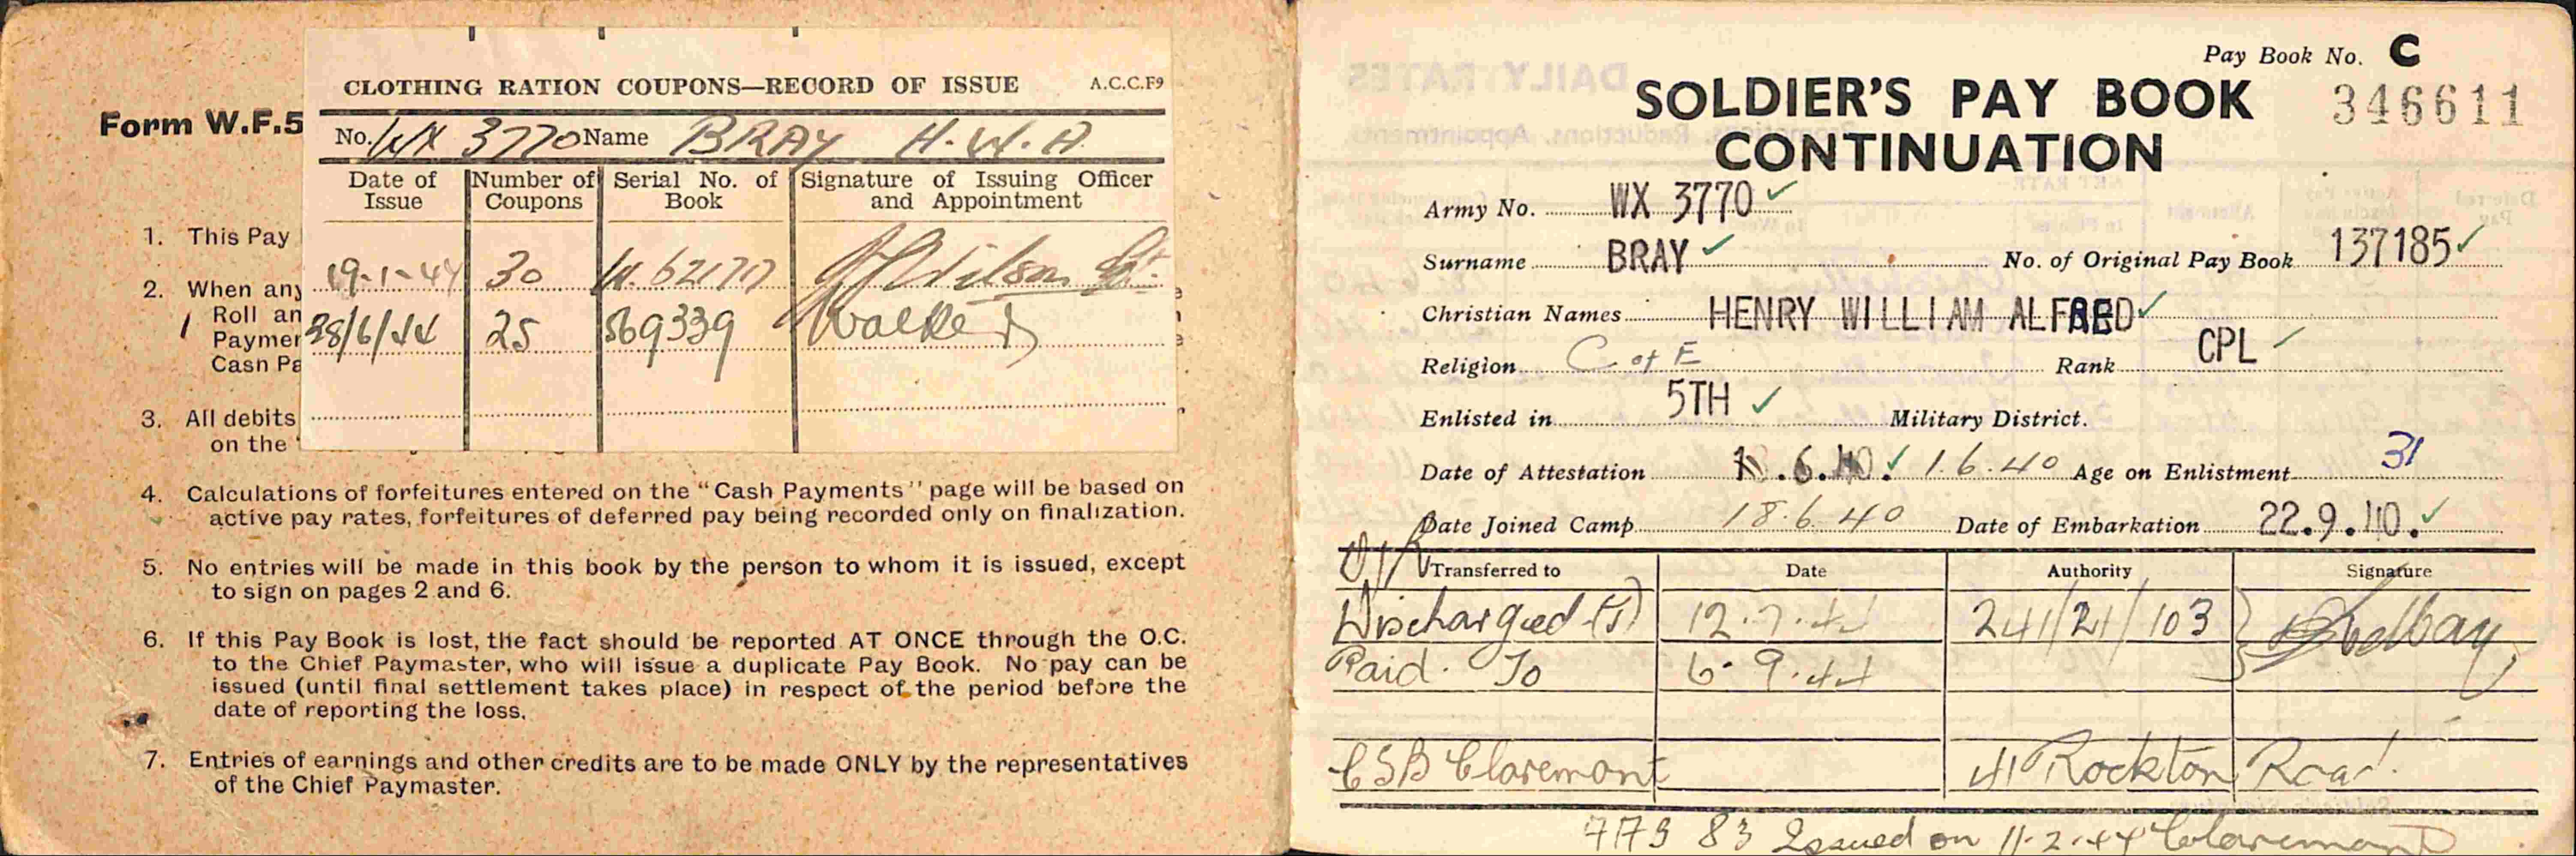 Form W.F.5
CLOTHING RATION COUPONS—RECORD OF ISSUE A.C.C.F9
No. WX 3770 Name BRAY H.W.A.
Date of Issue Number of Coupons Serial No. of Book Signature of Issuing Officer and Appointment
19-1-44 30 W. 62177
28/6/44 25 569339 Walker
1. This Pay
2. When any
Roll an
Paymer
Cash Pa
3. All debits
on the "
4. Calculations of forfeitures entered on the "Cash Payments" page will be based on
active pay rates, forfeitures of deferred pay being recorded only on finalization.
5. No entries will be made in this book by the person to whom it is issued, except
to sign on pages 2 and 6.
6. If this Pay Book is lost, the fact should be reported AT ONCE through the O.C.
to the Chief Paymaster, who will issue a duplicate Pay Book. No pay can be
issued (until final settlement takes place) in respect of the period before the
date of reporting the loss.
7. Entries of earnings and other credits are to be made ONLY by the representatives
of the Chief Paymaster.
Pay Book No. C
SOLDIER'S PAY BOOK 346611
CONTINUATION
Army No. WX 3770
Surname BRAY No. of Original Pay Book 137185
Christian Names HENRY WILLIAM ALFRED
Religion C of E Rank CPL
Enlisted in 5TH Military District.
Date of Attestation 1.6.40 Age on Enlistment 31
Date Joined Camp 18.6.40 Date of Embarkation 22.9.40.
Transferred to Date Authority Signature
Discharged (T) 12.7.44 241/21/103
Paid To 6.9.44
CSB Claremont 41 Rockton Road.
Issued on 11.2.44 Claremont